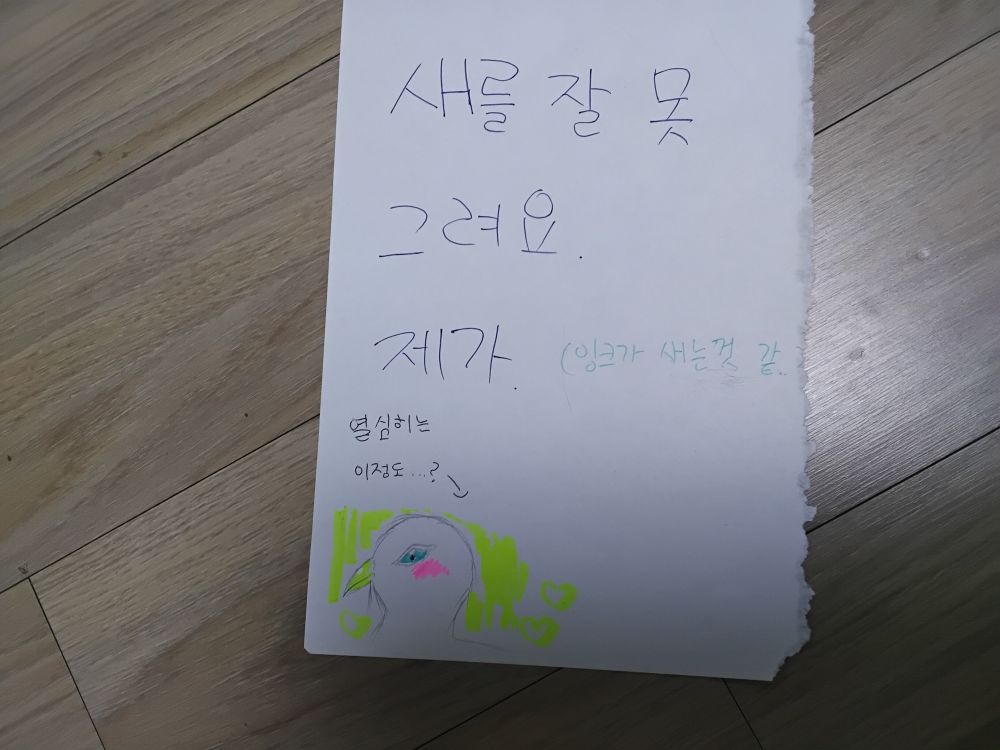 새를 잘 못
그려요.
제가.
(잉크가 새는것 같..
열심히는
이정도...?